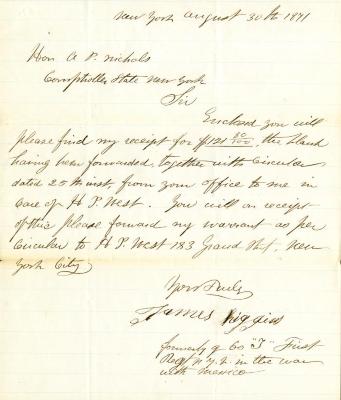 New York August 30th 1871
Hon A P. Nichols
Comptroller State New York
Sir
Enclosed you will
please find my receipt for $121 20/100, the blank
having been forwarded, together with Circular
dated 25th inst, from your office to me in
Care of H P. West. You will on receipt
of this please forward my warrant as per
Circular to H P. West 183 Grand St. New
York City
Yours Truly
James Higgins
formerly of Co "I" First
Regt N.Y.V. in the war
with Mexico